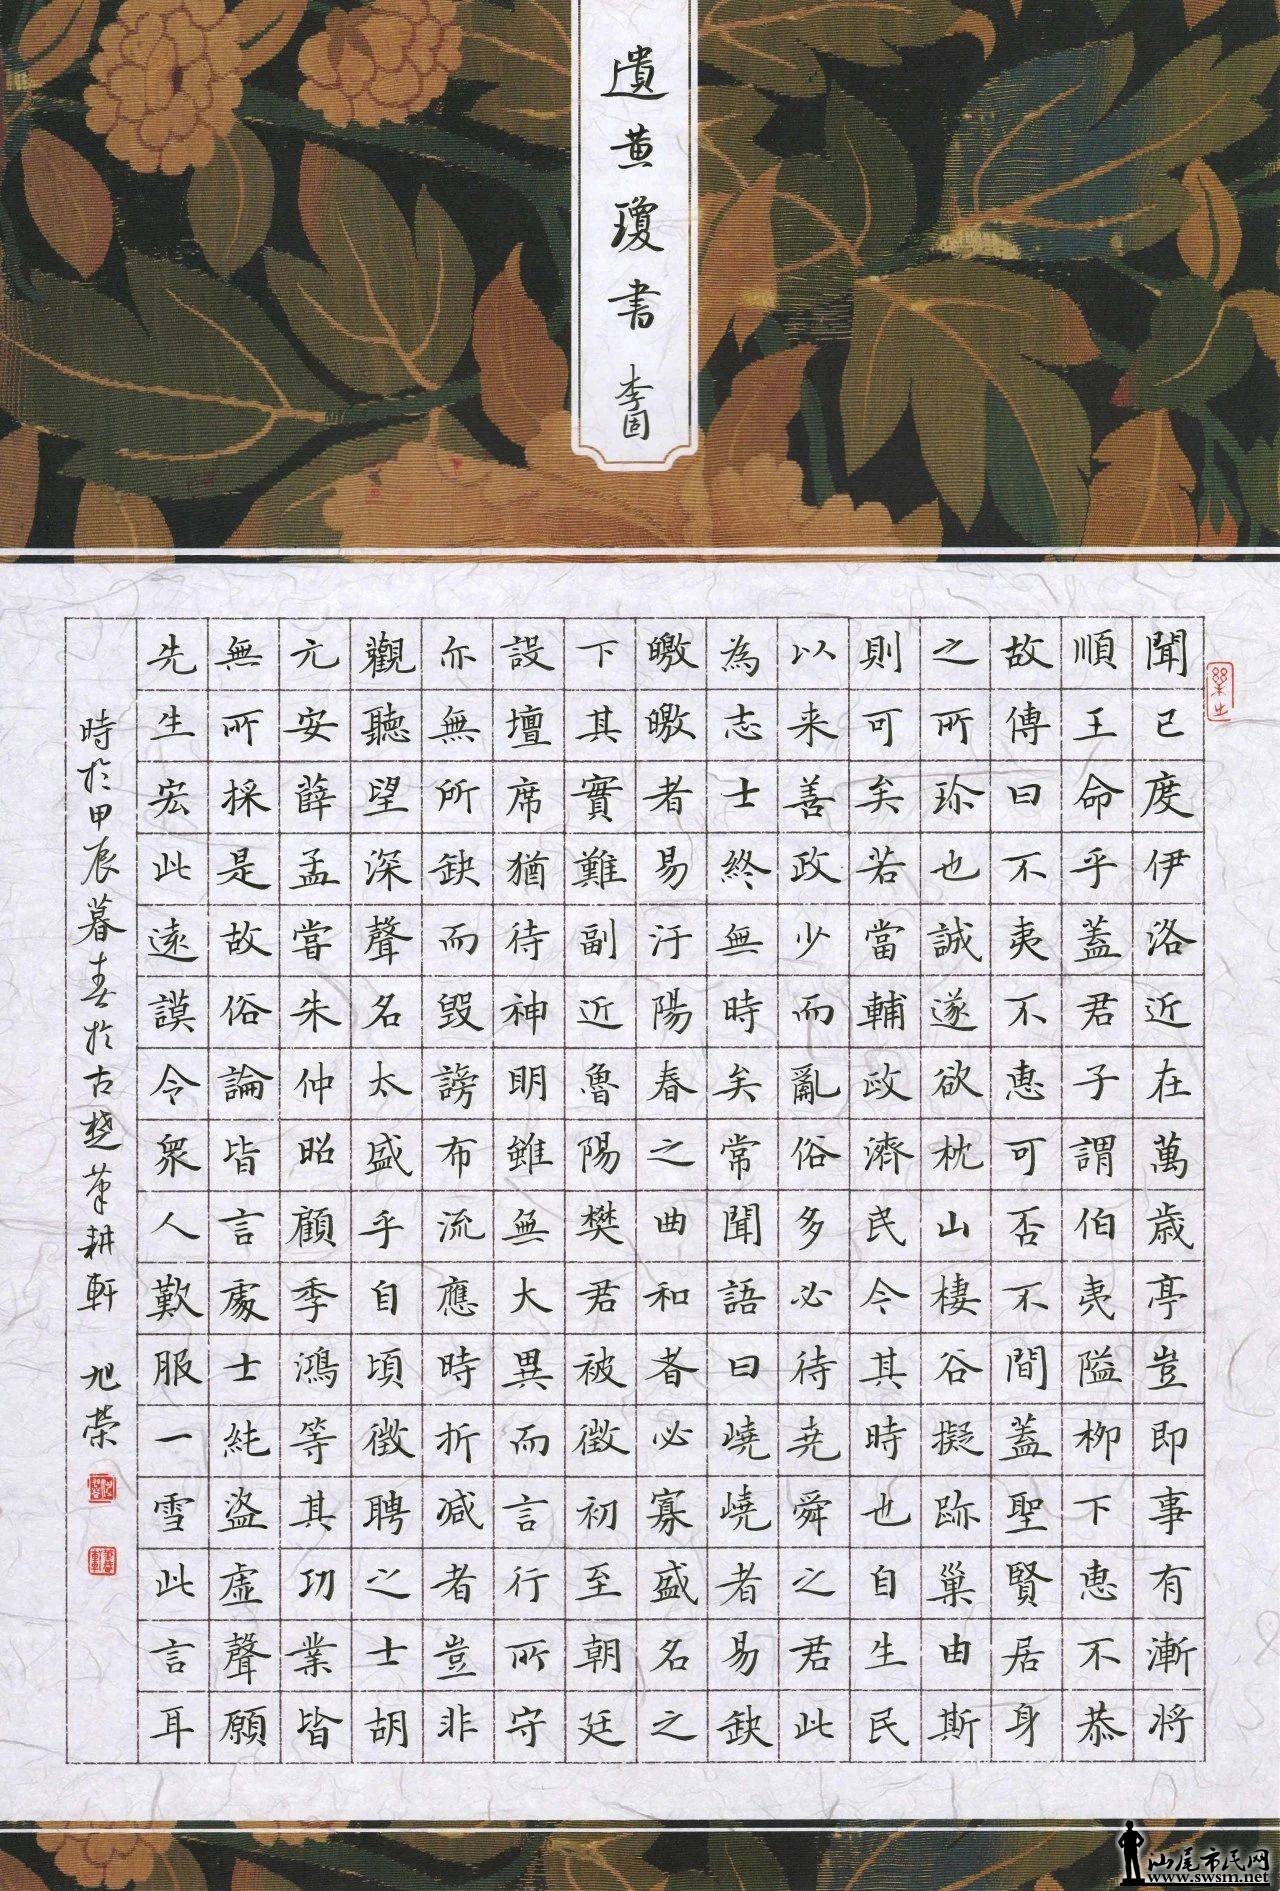 遺黄瓊書
李固
聞已度伊洛近在萬歲亭豈即事有漸將
順王命乎蓋君子謂伯夷隘柳下惠不恭
故傳曰不夷不惠可否不間蓋聖賢居身
之所珍也誠遂欲枕山棲谷擬跡巢由斯
則可矣若當輔政濟民今其時也自生民
以来善政少而亂俗多必待堯舜之君此
為志士終無時矣常聞語曰嶢嶢者易缺
皦皦者易汙陽春之曲和者必寡盛名之
下其實難副近魯陽樊君被徵初至朝廷
設壇席猶待神明雖無大異而言行所守
亦無所缺而毀謗布流應時折减者豈非
觀聽望深聲名太盛乎自頃徵聘之士胡
元安薛孟嘗朱仲昭顧季鴻等其功業皆
無所採是故俗論皆言處士純盜虛聲願
先生宏此遠謨令衆人歎服一雪此言耳
時於甲辰暮春於古楚筆耕軒 旭榮
汕尾市民网
www.swsm.net